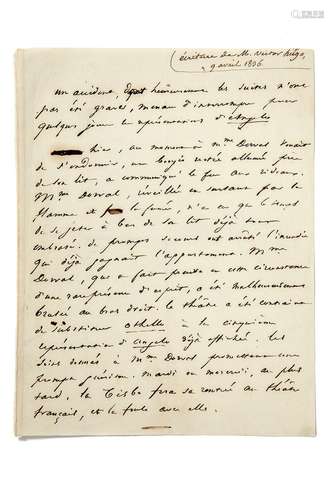 écriture de M. Victor Hugo,
9 avril 1836
un accident, dont heureusement les suites n'ont
pas été graves, menace d'interrompre pour
quelques jours les représentations d'Angelo
hier, au moment où Mme Dorval venait
de s'endormir, une bougie restée allumée près
de son lit, a communiqué le feu aux rideaux.
Mme Dorval, réveillée en sursaut par la
flamme et la fumée, n'a eu que le temps
de se jeter à bas de son lit déjà tout
embrasé. de prompts secours ont arrêté l'incendie
qui déjà gagnait l'appartement. Mme
Dorval, qui a fait preuve en cette circonstance
d'une rare présence d'esprit, a été malheureusement
brûlée au bras droit. le théâtre a été contraint
de substituer Othello à la cinquième
représentation d'Angelo déjà affichée. les
soins donnés à Mme Dorval promettent une
prompte guérison. mardi ou mercredi, au plus
tard, la Tisbe fera sa rentrée au théâtre
français, et la foule avec elle.